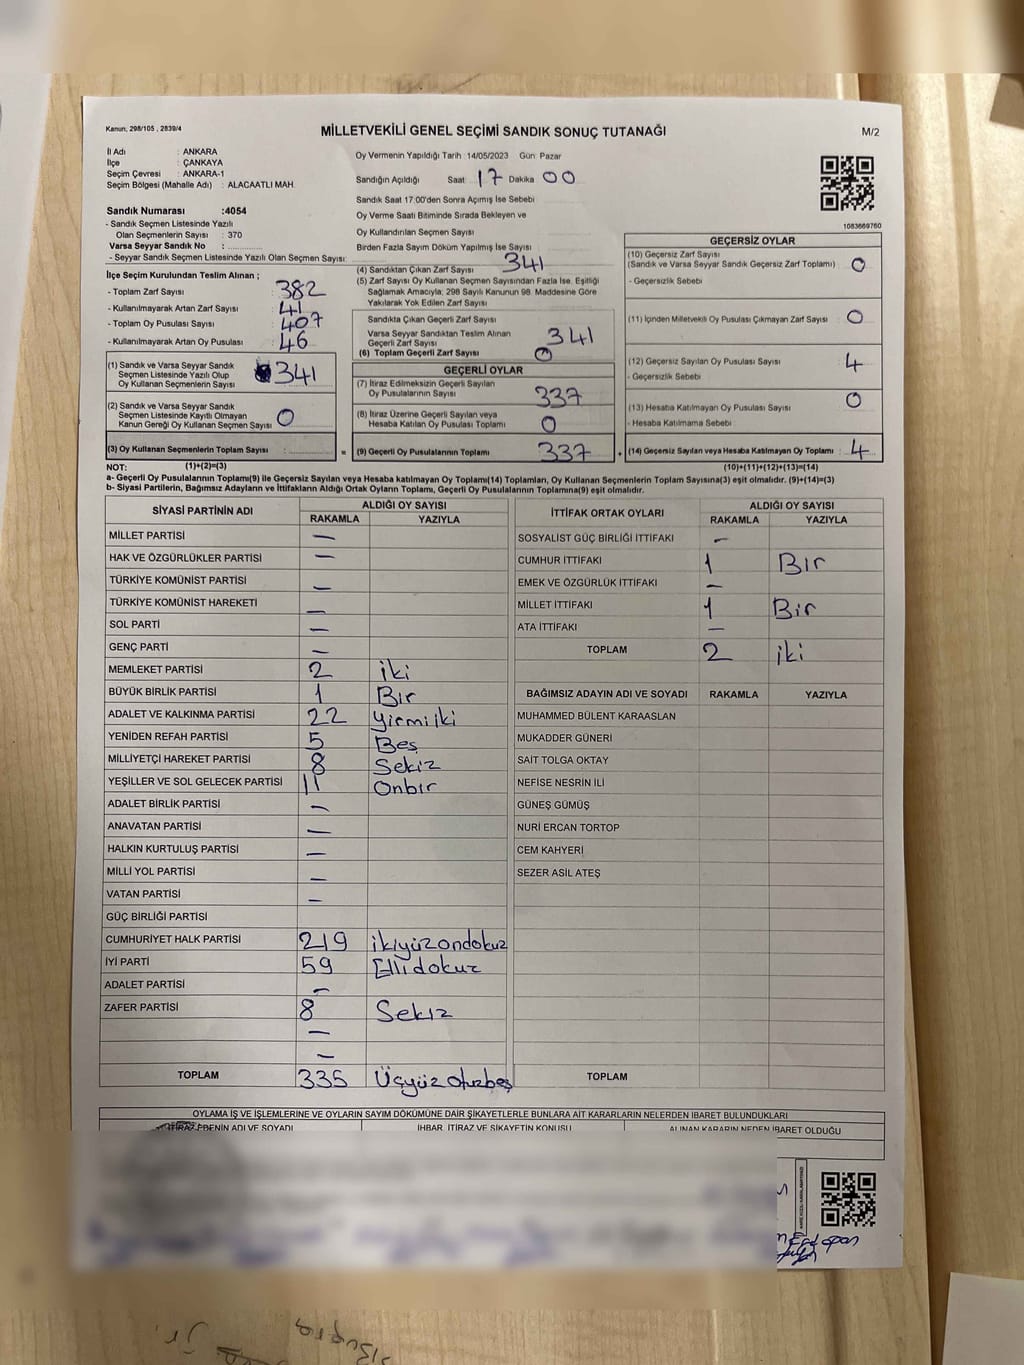 Kanun; 298/105 , 2839/4
MİLLETVEKİLİ GENEL SEÇİMİ SANDIK SONUÇ TUTANAĞI
M/2
İl Adı : ANKARA
İlçe : ÇANKAYA
Seçim Çevresi : ANKARA-1
Seçim Bölgesi (Mahalle Adı) : ALACAATLI MAH.
Oy Vermenin Yapıldığı Tarih :14/05/2023 Gün: Pazar
Sandığın Açıldığı Saat 17 Dakika 00
Sandık Saat 17:00'den Sonra Açımış İse Sebebi
Oy Verme Saati Bitiminde Sırada Bekleyen ve
Oy Kullandırılan Seçmen Sayısı
Birden Fazla Sayım Döküm Yapılmış İse Sayısı
1083669760
Sandık Numarası :4054
- Sandık Seçmen Listesinde Yazılı
Olan Seçmenlerin Sayısı : 370
Varsa Seyyar Sandık No :
- Seyyar Sandık Listesinde Yazılı Olan Seçmen Sayısı:
İlçe Seçim Kurulundan Teslim Alınan ;
- Toplam Zarf Sayısı : 382
- Kullanılmayarak Artan Zarf Sayısı : 41
- Toplam Oy Pusulası Sayısı : 407
- Kullanılmayarak Artan Oy Pusulası : 46
(1) Sandık ve Varsa Seyyar Sandık
Seçmen Listesinde Yazılı Olup
Oy Kullanan Seçmenlerin Sayısı 341
(2) Sandık ve Varsa Seyyar Sandık
Seçmen Listesinde Kayıtlı Olmayan
Kanun Gereği Oy Kullanan Seçmen Sayısı 0
(3) Oy Kullanan Seçmenlerin Toplam Sayısı :
(4) Sandıktan Çıkan Zarf Sayısı 341
(5) Zarf Sayısı Oy Kullanan Seçmen Sayısından Fazla İse, Eşitliği
Sağlamak Amacıyla; 298 Sayılı Kanunun 98. Maddesine Göre
Yakılarak Yok Edilen Zarf Sayısı
Sandıkta Çıkan Geçerli Zarf Sayısı
Varsa Seyyar Sandıktan Teslim Alınan
Geçerli Zarf Sayısı 341
(6) Toplam Geçerli Zarf Sayısı 0
GEÇERLİ OYLAR
(7) İtiraz Edilmeksizin Geçerli Sayılan
Oy Pusulalarının Sayısı 337
(8) İtiraz Üzerine Geçerli Sayılan veya
Hesaba Katılan Oy Pusulası Toplamı 0
= (9) Geçerli Oy Pusulalarının Toplamı 337
GEÇERSİZ OYLAR
(10) Geçersiz Zarf Sayısı
(Sandık ve Varsa Seyyar Sandık Geçersiz Zarf Toplamı) 0
- Geçersizlik Sebebi
(11) İçinden Milletvekili Oy Pusulası Çıkmayan Zarf Sayısı 0
(12) Geçersiz Sayılan Oy Pusulası Sayısı 4
- Geçersizlik Sebebi
(13) Hesaba Katılmayan Oy Pusulası Sayısı 0
- Hesaba Katılmama Sebebi
+ (14) Geçersiz Sayılan veya Hesaba Katılmayan Oy Toplamı : 4
NOT: (1)+(2)=(3) (10)+(11)+(12)+(13)=(14)
a- Geçerli Oy Pusulalarının Toplamı(9) ile Geçersiz Sayılan veya Hesaba katılmayan Oy Toplamı(14) Toplamları, Oy Kullanan Seçmenlerin Toplam Sayısına(3) eşit olmalıdır. (9)+(14)=(3)
b- Siyasi Partilerin, Bağımsız Adayların ve İttifakların Aldığı Ortak Oyların Toplamı, Geçerli Oy Pusulalarının Toplamına(9) eşit olmalıdır.
SİYASİ PARTİNİN ADI
ALDIĞI OY SAYISI
RAKAMLA YAZIYLA
MİLLET PARTİSİ —
HAK VE ÖZGÜRLÜKLER PARTİSİ —
TÜRKİYE KOMÜNİST PARTİSİ —
TÜRKİYE KOMÜNİST HAREKETİ —
SOL PARTİ —
GENÇ PARTİ —
MEMLEKET PARTİSİ 2 iki
BÜYÜK BİRLİK PARTİSİ 1 Bir
ADALET VE KALKINMA PARTİSİ 22 yirmiiki
YENİDEN REFAH PARTİSİ 5 Beş
MİLLİYETÇİ HAREKET PARTİSİ 8 Sekiz
YEŞİLLER VE SOL GELECEK PARTİSİ 11 Onbir
ADALET BİRLİK PARTİSİ —
ANAVATAN PARTİSİ —
HALKIN KURTULUŞ PARTİSİ —
MİLLİ YOL PARTİSİ —
VATAN PARTİSİ —
GÜÇ BİRLİĞİ PARTİSİ
CUMHURİYET HALK PARTİSİ 219 ikiyüzondokuz
İYİ PARTİ 59 Ellidokuz
ADALET PARTİSİ —
ZAFER PARTİSİ 8 Sekiz
—
—
TOPLAM 335 Üçyüzotuzbeş
İTTİFAK ORTAK OYLARI
ALDIĞI OY SAYISI
RAKAMLA YAZIYLA
SOSYALİST GÜÇ BİRLİĞİ İTTİFAKI —
CUMHUR İTTİFAKI 1 Bir
EMEK VE ÖZGÜRLÜK İTTİFAKI —
MİLLET İTTİFAKI 1 Bir
ATA İTTİFAKI —
TOPLAM 2 iki
BAĞIMSIZ ADAYIN ADI VE SOYADI RAKAMLA YAZIYLA
MUHAMMED BÜLENT KARAASLAN
MUKADDER GÜNERİ
SAİT TOLGA OKTAY
NEFİSE NESRİN İLİ
GÜNEŞ GÜMÜŞ
NURİ ERCAN TORTOP
CEM KAHYERİ
SEZER ASİL ATEŞ
TOPLAM
OYLAMA İŞ VE İŞLEMLERİNE VE OYLARIN SAYIM DÖKÜMÜNE DAİR ŞİKAYETLERLE BUNLARA AİT KARARLARIN NELERDEN İBARET BULUNDUKLARI
ADI VE SOYADI
İHBAR, İTİRAZ VE ŞİKAYETİN KONUSU
ALINAN KARARIN NEDEN İBARET OLDUĞU